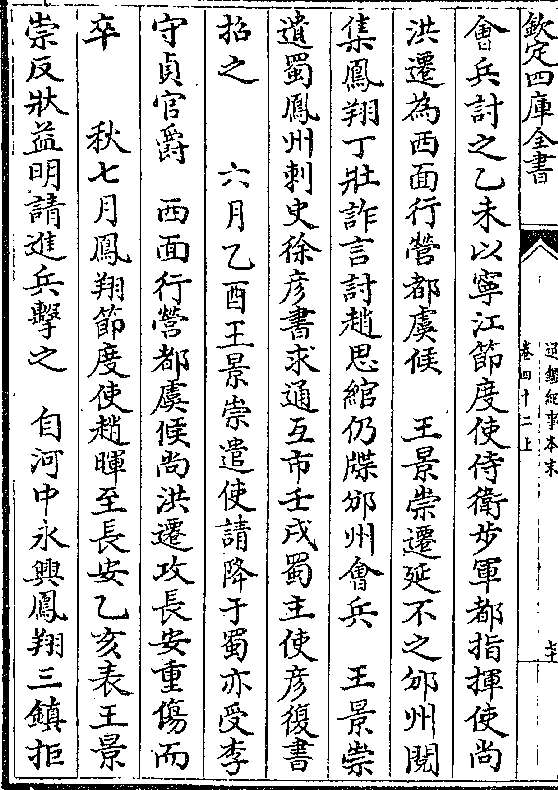 欽定四庫全書
通鑑紀事本末
卷四十二上
會兵討之乙未以寧江節度使侍衛步軍都指揮使尚
洪遷為西面行營都虞候　王景崇遷延不之邠州閱
集鳳翔丁壯詐言討趙思綰仍牒邠州會兵　王景崇
遺蜀鳳州刺史徐彦書求通互市壬戌蜀主使彦復書
招之　六月乙酉王景崇遣使請降于蜀亦受李
守貞官爵　西面行營都虞候尚洪遷攻長安重傷而
卒　秋七月鳳翔節度使趙暉至長安乙亥表王景
崇反狀益明請進兵擊之　自河中永興鳳翔三鎮拒